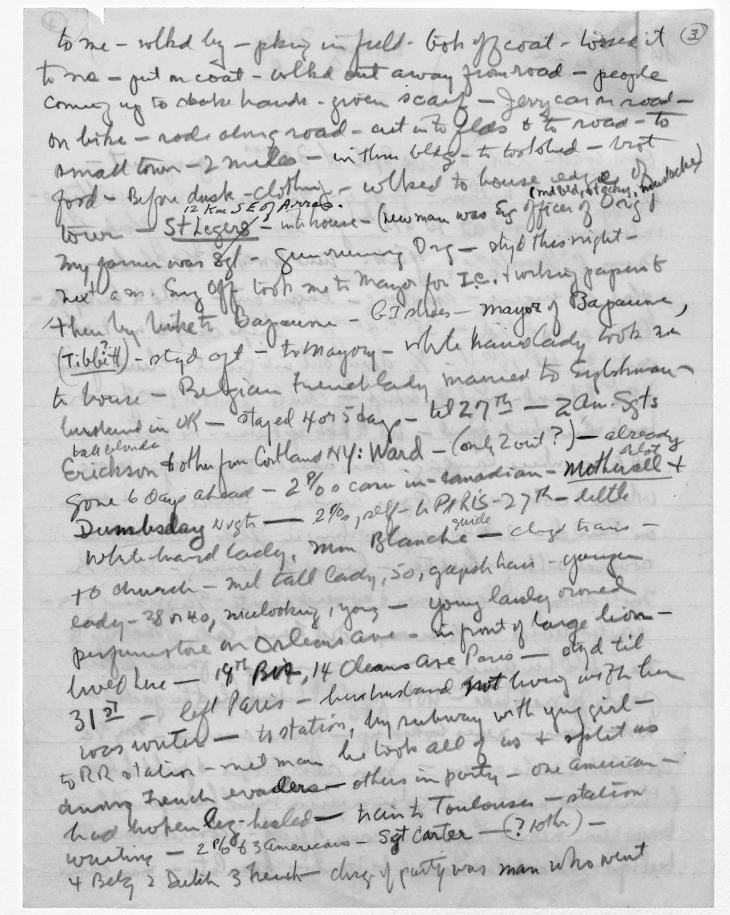 ③
to me – wlkd by – pkng in field – took off coat – tossed it
to me – put on coat – wlkd out away from road – people
coming up to shake hands – given scarf – Jerry car on road –
on bike – rode along road – cut into flds & to road – to
small town – 2 miles – in thru bldg – to toolshed – brot
food – Before dusk – clothing – wlked to house edge of
(mid bld, stocky, mustache)
12 Km SE of Arras.
town – St Legers – into house – (new man was Eng officer of Org)
my farmer was Sgt – gunrunning Org – styd this night –
next a.m. Eng Off took me to Mayor for I.C. & wrking papers &
then by bike to Bapaume – GI shoes – mayor of Bapaume,
(Tibbett?) – styd aft – to Mayory – white haired lady took me
to house – Belgian French lady married to Englishman –
husband in UK – stayed 4 or 5 days – til 27th – 2 Am. Sgts
ball blonde
Erickson & other from Cortland NY: Ward – (only 2 out?) – already
gone 6 days ahead – 2 P/Os came in – Canadian – Motherall &
pilot
Dumbsday Nvgtr – 2 P/O, self – to PARIS – 27th – little
white haired lady, Mm Blanche – chngd trains –
guide
to church – met tall lady, 50, grayish hair – younger
lady – 38 or 40, nicelooking, – young lady owned
perfume store on Orleans Ave – in front of large lion –
lived here – 14 Orleans Ave Paris – styd til
31st – left Paris – her husband not living with her
was writer – to station, by subway with yng girl –
to RR station – met man he took all of us & split us
among French evaders – others in party – one American –
had broken leg – healed – train to Toulouse – station
waiting – 2 P/O & 3 Americans – Sgt Carter – (? 10th) –
4 Belg 2 Dutch 3 French – chrg of party was man who went